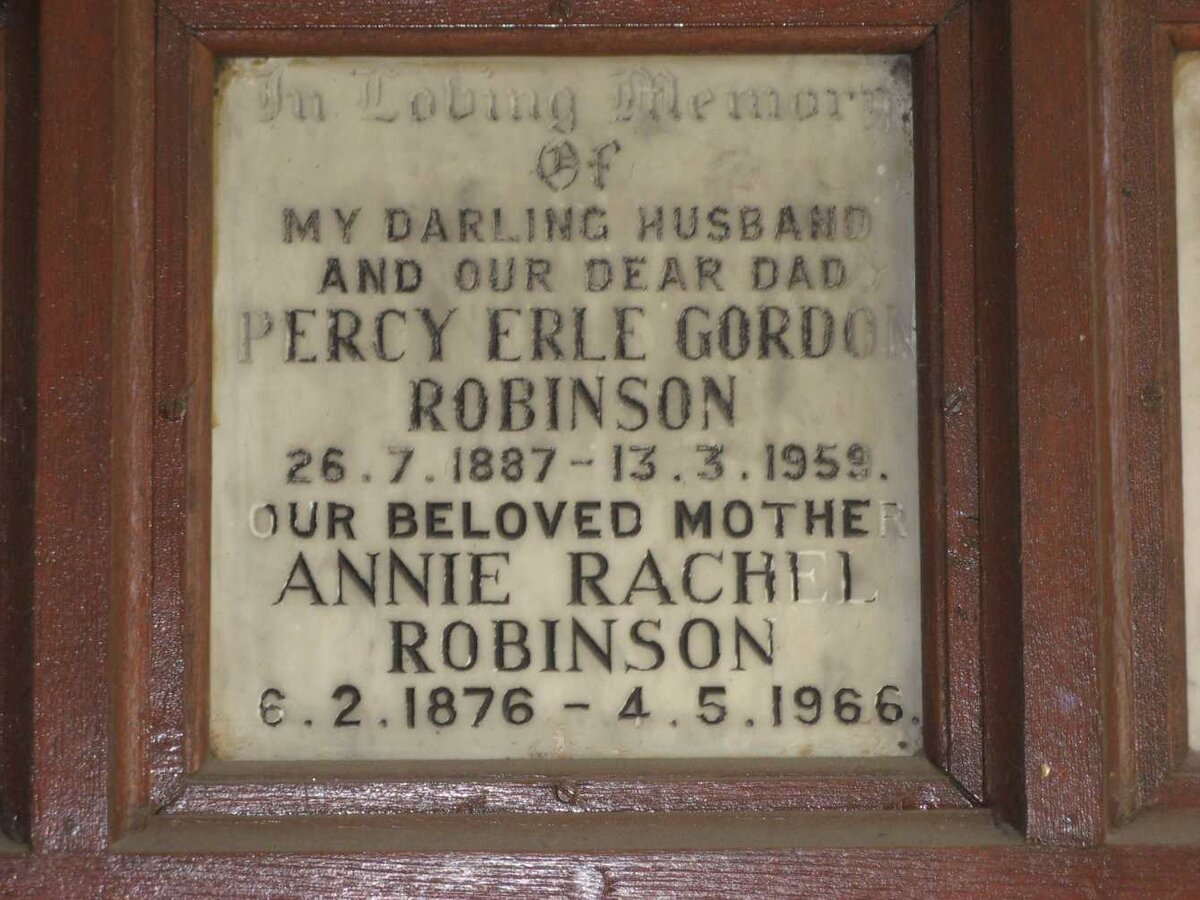 In Loving Memory
Of
MY DARLING HUSBAND
AND OUR DEAR DAD
PERCY ERLE GORDON
ROBINSON
26.7.1887 - 13.3.1959.
OUR BELOVED MOTHER
ANNIE RACHEL
ROBINSON
6.2.1876 - 4.5.1966.